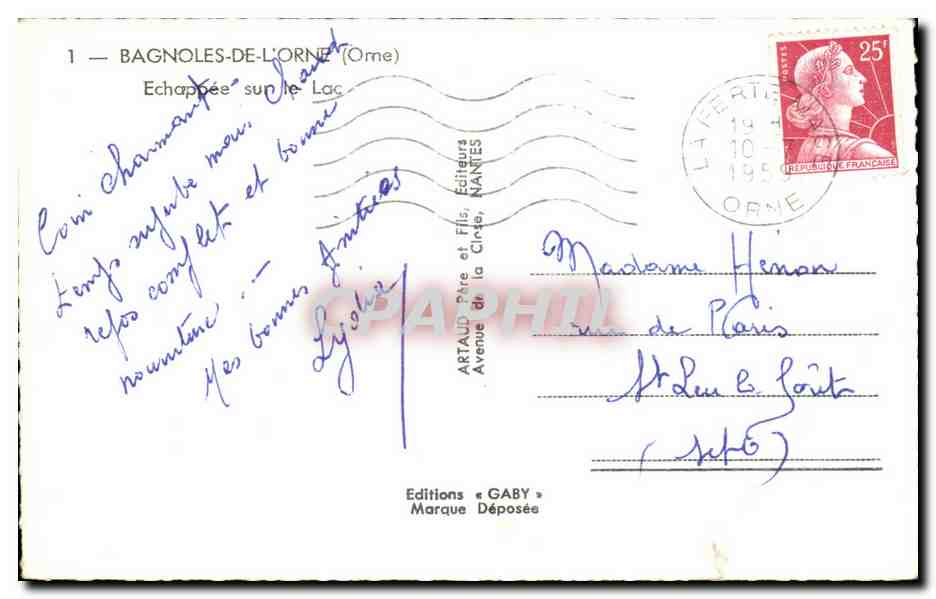 1 — BAGNOLES-DE-L'ORNE (Orne)
Echappée sur le Lac
Coin charmant -
temps superbe mais chaud
repos complet et bonne
nourriture. —
Mes bonnes Amitiés
ARTAUD Père et Fils, Editeurs
Avenue de la Close, NANTES
POSTES
25F
REPUBLIQUE FRANCAISE
LA FERTE
19
10 -
1959
ORNE
Madame Hénon
rue de Paris
St Leu la Forêt
(S et O)
Editions « GABY »
Marque Déposée
CPAPHIL